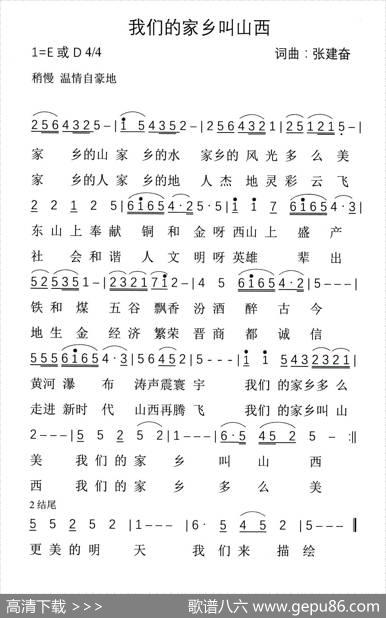 我们的家乡叫山西
1=E 或 D 4/4 词曲：张建奋
稍慢 温情自豪地
2 5 6 4 3 2 5 - | i 5 4 3 5 2 - | 2 5 6 4 3 2 1 | 2 5 1 2 1 5 -
家 乡的山 家 乡的水 家乡的 风光 多么 美
家 乡的人 家 乡的地 人杰 地 灵 彩 云 飞
2 2 1 2 5 | 6 i 6 5 4·2 5 - | i i 7 | 6 i 6 5 4·3 |
东 山 上 奉 献 铜 和 金 呀 西山 上 盛 产
社 会 和 谐 人 文 明 呀 英雄 辈 出
5 2 5 3 5 1 - | 2 2 3 2 1 7 1 2 - | 2 5 6 i 6 5 4·2 | 5 - - - |
铁 和 煤 五 谷 飘香 汾 酒 醉 古 今
地 生 金 经 济 繁荣 晋 商 都 诚 信
5 5 5 6 i 6 5 4·3 | 5 6 4 5 2 - | 5 - - - | i i 5 4 3 2 3 2 1 |
黄河 瀑 布 涛声震寰 宇 我们 的家乡多么
走进 新时 代 山西再腾 飞 我们 的家乡叫 山
2 - - - | 5 5 2 5 2 | 1 - - - | 6·5 4 5 2 | 5 - - - :||
美 我 们 的 家 乡 叫 山 西
西 我 们 的 家 乡 多 么 美
2 结尾
5 5 2 5 2 | 1 - - - | 6· 5 4 5 2 | 5 - - - ||
更 美 的 明 天 我 们 来 描 绘
高清下载 >>> 歌谱八六 www.gepu86.com